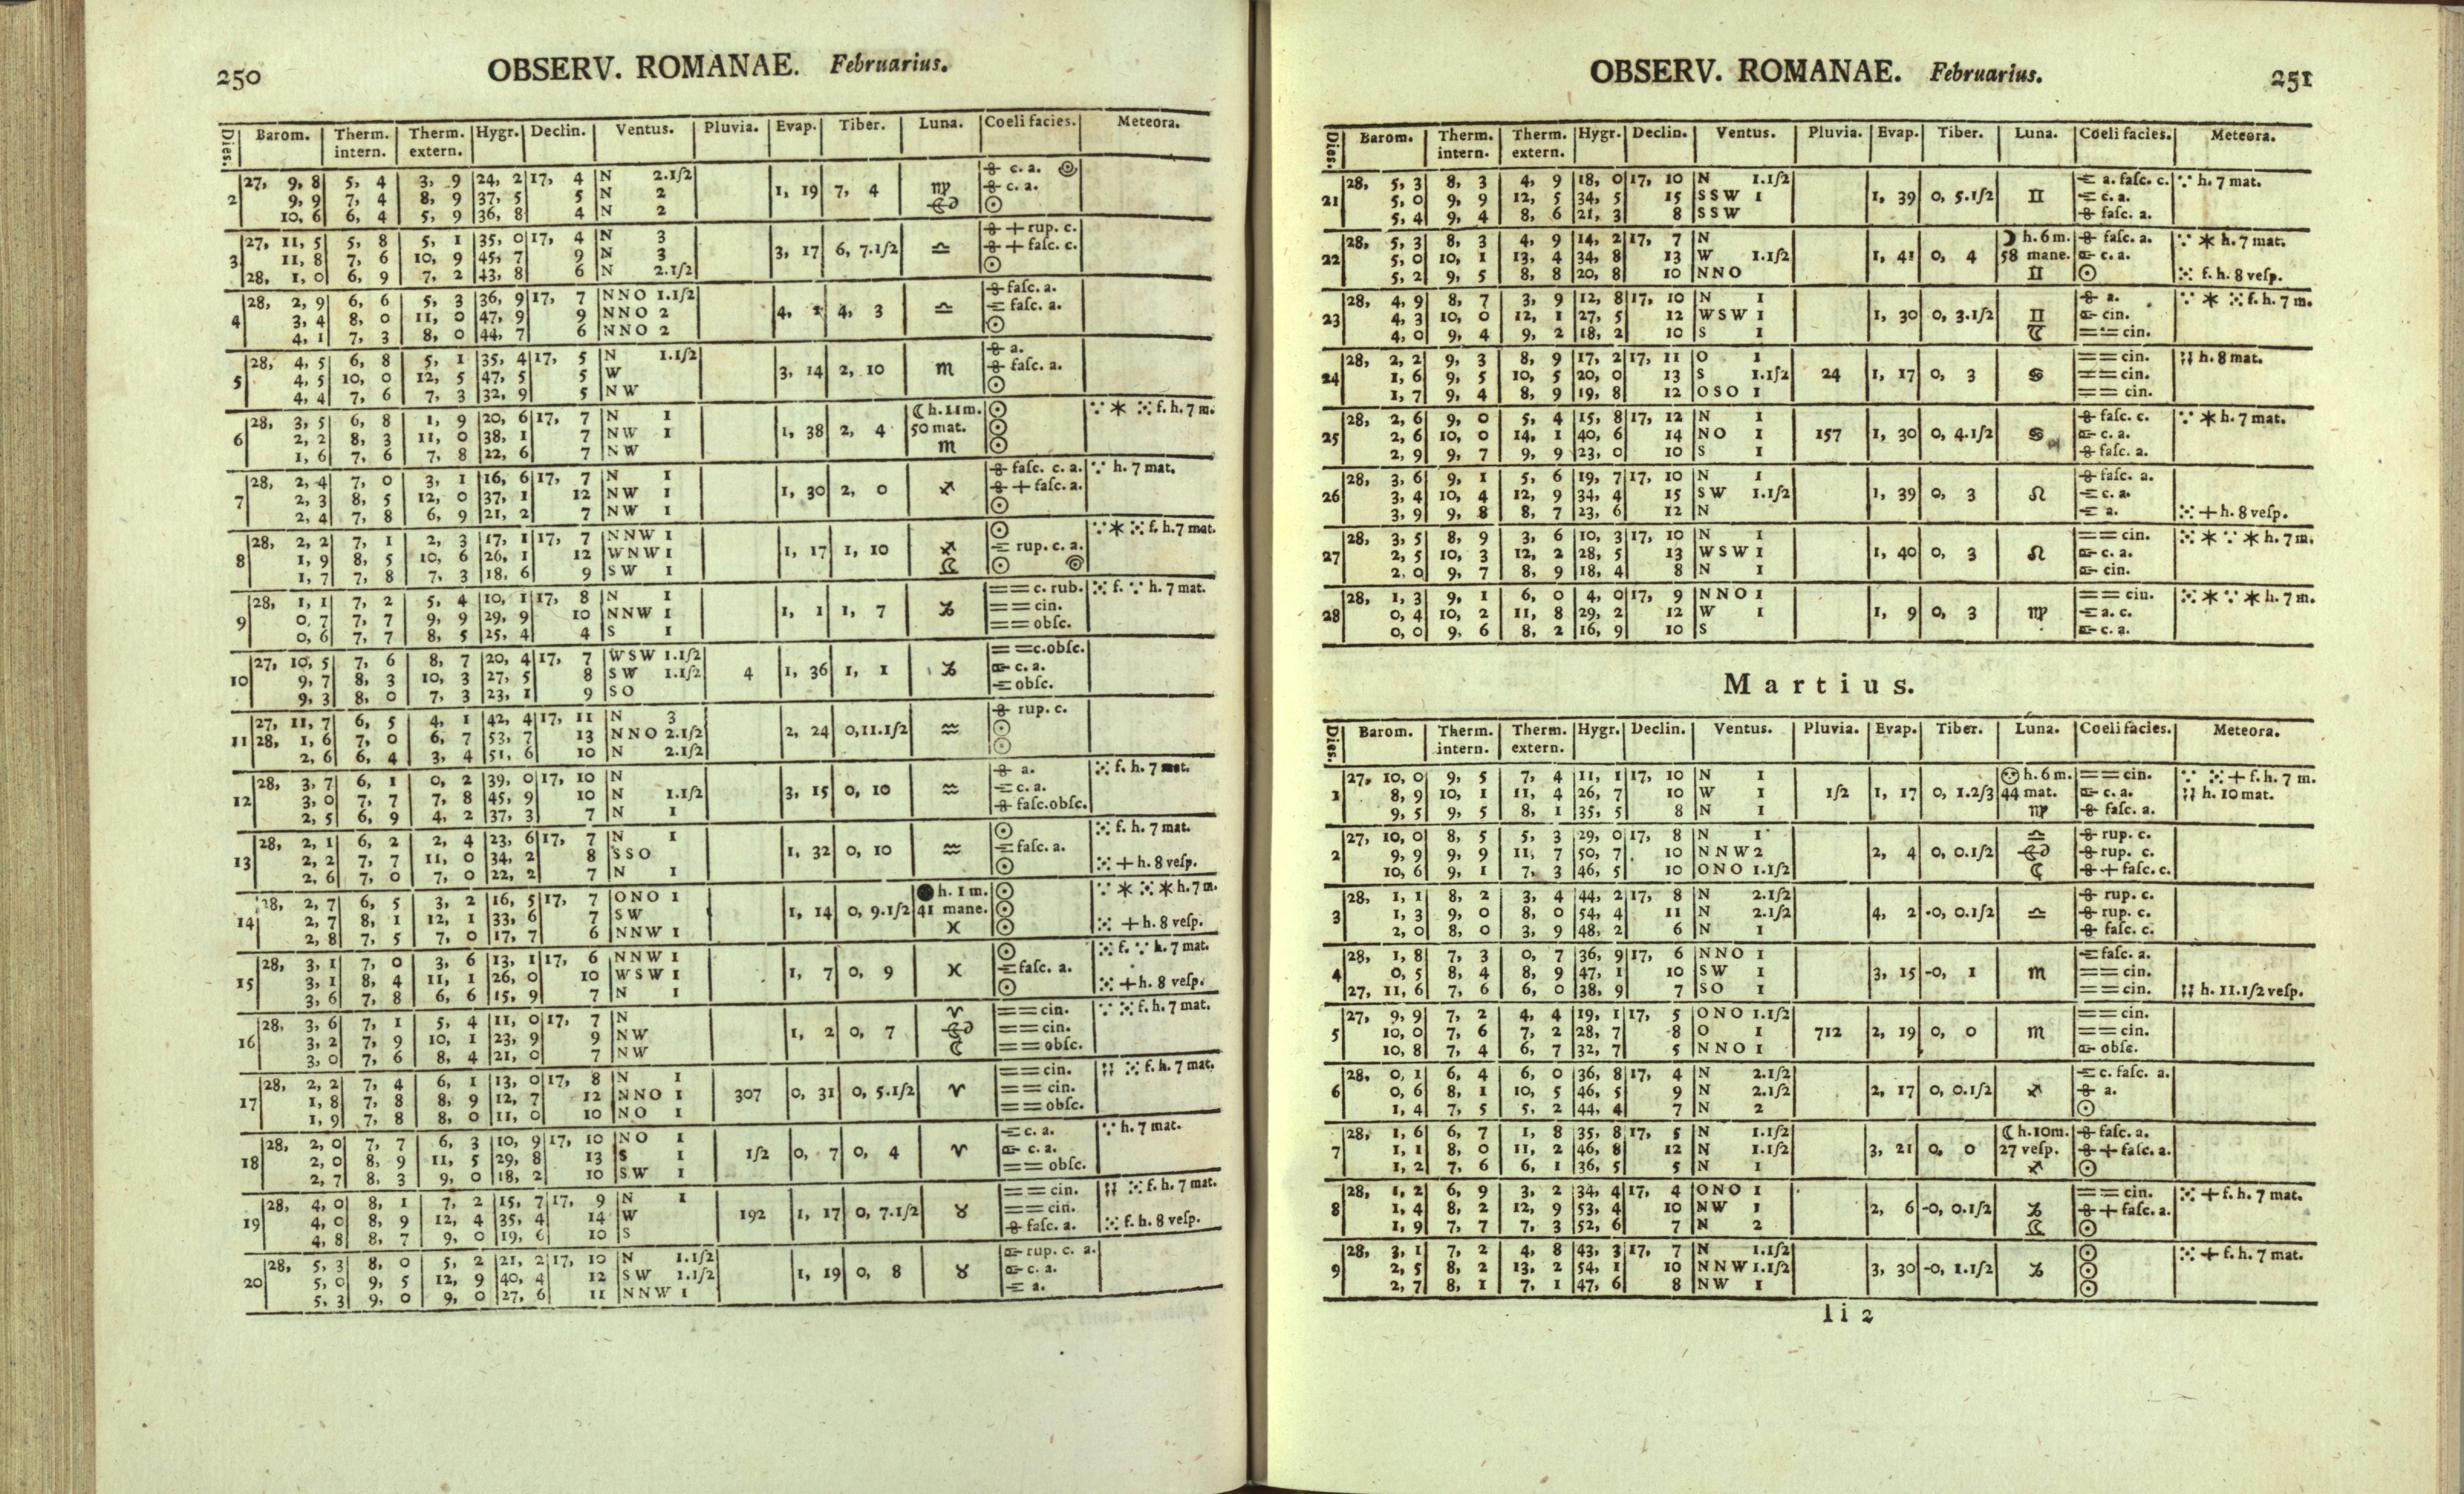 250 OBSERV. ROMANAE. Februarius.
Dies. Barom. Therm. Therm. Hygr. Declin. Ventus. Pluvia. Evap. Tiber. Luna. Coeli facies. Meteora.
intern. extern.
27, 9, 8 5, 4 3, 9 24, 2 17, 4 N 2.1ſ2 c. a.
2 9, 9 7, 4 8, 9 37, 5 5 N 2 1, 19 7, 4 ♍ c. a.
10, 6 6, 4 5, 9 36, 8 4 N 2 ☉
27, 11, 5 5, 8 5, 1 35, 0 17, 4 N 3 + rup. c.
3 11, 8 7, 6 10, 9 45, 7 9 N 3 3, 17 6, 7.1ſ2 ♎ + faſc. c.
28, 1, 0 6, 9 7, 2 43, 8 6 N 2.1ſ2 ☉
28, 2, 9 6, 6 5, 3 36, 9 17, 7 NNO 1.1ſ2 faſc. a.
4 3, 4 8, 0 11, 0 47, 9 9 NNO 2 4, 4, 3 ♎ faſc. a.
4, 1 7, 3 8, 0 44, 7 6 NNO 2 ☉
28, 4, 5 6, 8 5, 1 35, 4 17, 5 N 1.1ſ2 a.
5 4, 5 10, 0 12, 5 47, 5 5 W 3, 14 2, 10 ♏ faſc. a.
4, 4 7, 6 7, 3 32, 9 5 NW ☉
28, 3, 5 6, 8 1, 9 20, 6 17, 7 N 1 ☾ h. 11 m. ☉ ∵ ✶ ⁙ f. h. 7 m.
6 2, 2 8, 3 11, 0 38, 1 7 NW 1 1, 38 2, 4 50 mat. ☉
1, 6 7, 6 7, 8 22, 6 7 NW ♏ ☉
28, 2, 4 7, 0 3, 1 16, 6 17, 7 N 1 faſc. c. a. ∵ h. 7 mat.
7 2, 3 8, 5 12, 0 37, 1 12 NW 1 1, 30 2, 0 ♐ + faſc. a.
2, 4 7, 8 6, 9 21, 2 7 NW 1 ☉
28, 2, 2 7, 1 2, 3 17, 1 17, 7 NNW 1 ☉ ∵ ✶ ⁙ f. h. 7 mat.
8 1, 9 8, 5 10, 6 26, 1 12 WNW 1 1, 17 1, 10 ♐ rup. c. a.
1, 7 7, 8 7, 3 18, 6 9 SW 1 ☉
28, 1, 1 7, 2 5, 4 10, 1 17, 8 N 1 == c. rub. ⁙ f. ∵ h. 7 mat.
9 0, 7 7, 7 9, 9 29, 9 10 NNW 1 1, 1 1, 7 ♑ == cin.
0, 6 7, 7 8, 5 25, 4 4 S 1 == obſc.
27, 10, 5 7, 6 8, 7 20, 4 17, 7 WSW 1.1ſ2 == c. obſc.
10 9, 7 8, 3 10, 3 27, 5 8 SW 1.1ſ2 4 1, 36 1, 1 ♑ c. a.
9, 3 8, 0 7, 3 23, 1 9 SO obſc.
27, 11, 7 6, 5 4, 1 42, 4 17, 11 N 3 rup. c.
11 28, 1, 6 7, 0 6, 7 53, 7 13 NNO 2.1ſ2 2, 24 0, 11.1ſ2 ♒ ☉
2, 6 6, 4 3, 4 51, 6 10 N 2.1ſ2 ☉
28, 3, 7 6, 1 0, 2 39, 0 17, 10 N a. ⁙ f. h. 7 mat.
12 3, 0 7, 7 7, 8 45, 9 10 N 1.1ſ2 3, 15 0, 10 ♒ c. a.
2, 5 6, 9 4, 2 37, 3 7 N 1 faſc. obſc.
28, 2, 1 6, 2 2, 4 23, 6 17, 7 N 1 ☉ ⁙ f. h. 7 mat.
13 2, 2 7, 7 11, 0 34, 2 8 SSO 1, 32 0, 10 ♒ faſc. a.
2, 6 7, 0 7, 0 22, 2 7 N 1 ☉ ⁙ + h. 8 veſp.
28, 2, 7 6, 5 3, 2 16, 5 17, 7 ONO 1 ● h. 1 m. ☉ ∵ ✶ ⁙ ✶ h. 7 m.
14 2, 7 8, 1 12, 1 33, 6 7 SW 1, 14 0, 9.1ſ2 41 mane. ☉
2, 8 7, 5 7, 0 17, 7 6 NNW 1 ♓ ☉ ⁙ + h. 8 veſp.
28, 3, 1 7, 0 3, 6 13, 1 17, 6 NNW 1 ☉ ⁙ f. ∵ h. 7 mat.
15 3, 1 8, 4 11, 1 26, 0 10 WSW 1 1, 7 0, 9 ♓ faſc. a.
3, 6 7, 8 6, 6 15, 9 7 N 1 ☉ ⁙ + h. 8 veſp.
28, 3, 6 7, 1 5, 4 11, 0 17, 7 N ♈ == cin. ∵ ⁙ f. h. 7 mat.
16 3, 2 7, 9 10, 1 23, 9 9 NW 1, 2 0, 7 == cin.
3, 0 7, 6 8, 4 21, 0 7 NW ☾ == obſc.
28, 2, 2 7, 4 6, 1 13, 0 17, 8 N 1 == cin. ⁙ f. h. 7 mat.
17 1, 8 7, 8 8, 9 12, 7 12 NNO 1 307 0, 31 0, 5.1ſ2 ♈ == cin.
1, 9 7, 8 8, 0 11, 0 10 NO 1 == obſc.
28, 2, 0 7, 7 6, 3 10, 9 17, 10 NO 1 c. a. ∵ h. 7 mat.
18 2, 0 8, 9 11, 5 29, 8 13 S 1 1ſ2 0, 7 0, 4 ♈ c. a.
2, 7 8, 3 9, 0 18, 2 10 SW 1 == obſc.
28, 4, 0 8, 1 7, 2 15, 7 17, 9 N 1 == cin. ⁙ f. h. 7 mat.
19 4, 0 8, 9 12, 4 35, 4 14 W 192 1, 17 0, 7.1ſ2 ♉ == cin.
4, 8 8, 7 9, 0 19, 10 S faſc. a. ⁙ f. h. 8 veſp.
28, 5, 3 8, 0 5, 2 21, 2 17, 10 N 1.1ſ2 rup. c. a.
20 5, 0 9, 5 12, 9 40, 4 12 SW 1.1ſ2 1, 19 0, 8 ♉ c. a.
5, 3 9, 0 9, 0 27, 6 11 NNW 1 a.
OBSERV. ROMANAE. Februarius. 251
Dies. Barom. Therm. Therm. Hygr. Declin. Ventus. Pluvia. Evap. Tiber. Luna. Coeli facies. Meteora.
intern. extern.
28, 5, 3 8, 3 4, 9 18, 0 17, 10 N 1.1ſ2 a. faſc. c. ∵ h. 7 mat.
21 5, 0 9, 9 12, 5 34, 5 15 SSW 1 1, 39 0, 5.1ſ2 ♊ c. a.
5, 4 9, 4 8, 6 21, 3 8 SSW faſc. a.
28, 5, 3 8, 3 4, 9 14, 2 17, 7 N ☽ h. 6 m. faſc. a. ∵ ✶ h. 7 mat.
22 5, 0 10, 1 13, 4 34, 8 13 W 1.1ſ2 1, 41 0, 4 58 mane. c. a.
5, 2 9, 5 8, 8 20, 8 10 NNO ♊ ☉ ⁙ f. h. 8 veſp.
28, 4, 9 8, 7 3, 9 12, 8 17, 10 N 1 a. ∵ ✶ ⁙ f. h. 7 m.
23 4, 3 10, 0 12, 1 27, 5 12 WSW 1 1, 30 0, 3.1ſ2 ♊ cin.
4, 0 9, 4 9, 2 18, 2 10 S 1 == cin.
28, 2, 2 9, 3 8, 9 17, 2 17, 11 O 1 == cin. h. 8 mat.
24 1, 6 9, 5 10, 5 20, 0 13 S 1.1ſ2 24 1, 17 0, 3 ♋ == cin.
1, 7 9, 4 8, 9 19, 8 12 OSO 1 == cin.
28, 2, 6 9, 0 5, 4 15, 8 17, 12 N 1 faſc. c. ∵ ✶ h. 7 mat.
25 2, 6 10, 0 14, 1 40, 6 14 NO 1 157 1, 30 0, 4.1ſ2 ♋ c. a.
2, 9 9, 7 9, 9 23, 0 10 S 1 faſc. a.
28, 3, 6 9, 1 5, 6 19, 7 17, 10 N 1 faſc. a.
26 3, 4 10, 4 12, 9 34, 4 15 SW 1.1ſ2 1, 39 0, 3 ♌ c. a.
3, 9 9, 8 8, 7 23, 6 12 N a. ⁙ + h. 8 veſp.
28, 3, 5 8, 9 3, 6 10, 3 17, 10 N 1 == cin. ⁙ ✶ ∵ ✶ h. 7 m.
27 2, 5 10, 3 12, 2 28, 5 13 WSW 1 1, 40 0, 3 ♌ c. a.
2, 0 9, 7 8, 9 18, 4 8 N 1 cin.
28, 1, 3 9, 1 6, 0 4, 0 17, 9 NNO 1 == cin. ⁙ ✶ ∵ ✶ h. 7 m.
28 0, 4 10, 2 11, 8 29, 2 12 W 1 1, 9 0, 3 ♍ a. c.
0, 0 9, 6 8, 2 16, 9 10 S c. a.
Martius.
Dies. Barom. Therm. Therm. Hygr. Declin. Ventus. Pluvia. Evap. Tiber. Luna. Coeli facies. Meteora.
intern. extern.
27, 10, 0 9, 5 7, 4 11, 1 17, 10 N 1 h. 6 m. == cin. ∵ ⁙ + f. h. 7 m.
1 8, 9 10, 1 11, 4 26, 7 10 W 1 1ſ2 1, 17 0, 1.2ſ3 44 mat. c. a. h. 10 mat.
9, 5 9, 5 8, 1 35, 5 8 N 1 ♍ faſc. a.
27, 10, 0 8, 5 5, 3 29, 0 17, 8 N 1 ♎ rup. c.
2 9, 9 9, 9 11, 7 50, 7 10 NNW 2 2, 4 0, 0.1ſ2 rup. c.
10, 6 9, 1 7, 3 46, 5 10 ONO 1.1ſ2 ☾ + faſc. c.
28, 1, 1 8, 2 3, 4 44, 2 17, 8 N 2.1ſ2 rup. c.
3 1, 3 9, 0 8, 0 54, 4 11 N 2.1ſ2 4, 2 -0, 0.1ſ2 ♎ rup. c.
2, 0 8, 0 3, 9 48, 2 6 N 1 faſc. c.
28, 1, 8 7, 3 0, 7 36, 9 17, 6 NNO 1 faſc. a.
4 0, 5 8, 4 8, 9 47, 1 10 SW 1 3, 15 -0, 1 ♏ == cin.
27, 11, 6 7, 6 6, 0 38, 9 7 SO 1 == cin. h. 11.1ſ2 veſp.
27, 9, 9 7, 2 4, 4 19, 1 17, 5 ONO 1.1ſ2 == cin.
5 10, 0 7, 6 7, 2 28, 7 8 O 1 712 2, 19 0, 0 ♏ == cin.
10, 8 7, 4 6, 7 32, 7 5 NNO 1 obſc.
28, 0, 1 6, 4 6, 0 36, 8 17, 4 N 2.1ſ2 c. faſc. a.
6 0, 6 8, 1 10, 5 46, 5 9 N 2.1ſ2 2, 17 0, 0.1ſ2 ♐ a.
1, 4 7, 5 5, 2 44, 4 7 N 2 ☉
28, 1, 6 6, 7 1, 8 35, 8 17, 5 N 1.1ſ2 ☾ h. 10 m. faſc. a.
7 1, 1 8, 0 11, 2 46, 8 12 N 1.1ſ2 3, 21 0, 0 27 veſp. + faſc. a.
1, 2 7, 6 6, 1 36, 5 5 N 1 ♐ ☉
28, 1, 2 6, 9 3, 2 34, 4 17, 4 ONO 1 == cin. ⁙ + f. h. 7 mat.
8 1, 4 8, 2 12, 9 53, 4 10 NW 1 2, 6 -0, 0.1ſ2 ♑ + faſc. a.
1, 9 7, 7 7, 3 52, 6 7 N 2 ☉
28, 3, 1 7, 2 4, 8 43, 3 17, 7 N 1.1ſ2 ☉ ⁙ + f. h. 7 mat.
9 2, 5 8, 2 13, 2 54, 1 10 NNW 1.1ſ2 3, 30 -0, 1.1ſ2 ♑ ☉
2, 7 8, 1 7, 1 47, 6 8 NW 1 ☉
Iii 2